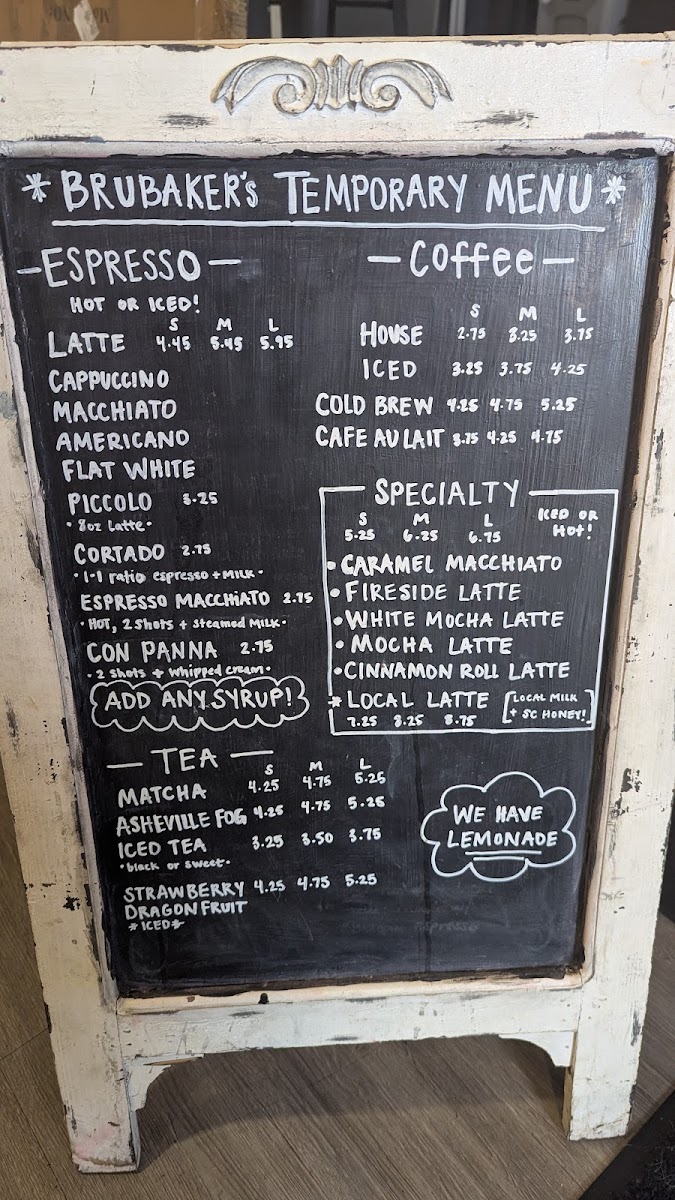 * BRUBAKER'S TEMPORARY MENU *
- ESPRESSO -
HOT OR ICED!
S M L
LATTE 4.45 5.45 5.95
CAPPUCCINO
MACCHIATO
AMERICANO
FLAT WHITE
PICCOLO 3.25
• 8oz Latte •
CORTADO 2.75
• 1-1 ratio espresso + MILK •
ESPRESSO MACCHIATO 2.75
• HOT, 2 Shots + Steamed MILK •
CON PANNA 2.75
• 2 shots + whipped cream •
ADD ANY SYRUP!
- TEA -
S M L
MATCHA 4.25 4.75 5.25
ASHEVILLE FOG 4.25 4.75 5.25
ICED TEA 3.25 3.50 3.75
• black or sweet •
STRAWBERRY 4.25 4.75 5.25
DRAGON FRUIT
*ICED*
- Coffee -
S M L
HOUSE 2.75 3.25 3.75
ICED 3.25 3.75 4.25
COLD BREW 4.25 4.75 5.25
CAFE AU LAIT 3.75 4.25 4.75
SPECIALTY
S M L
5.25 6.25 6.75
ICED OR
HOT!
• CARAMEL MACCHIATO
• FIRESIDE LATTE
• WHITE MOCHA LATTE
• MOCHA LATTE
• CINNAMON ROLL LATTE
* LOCAL LATTE [LOCAL MILK
+ SC HONEY!]
7.25 8.25 8.75
WE HAVE
LEMONADE